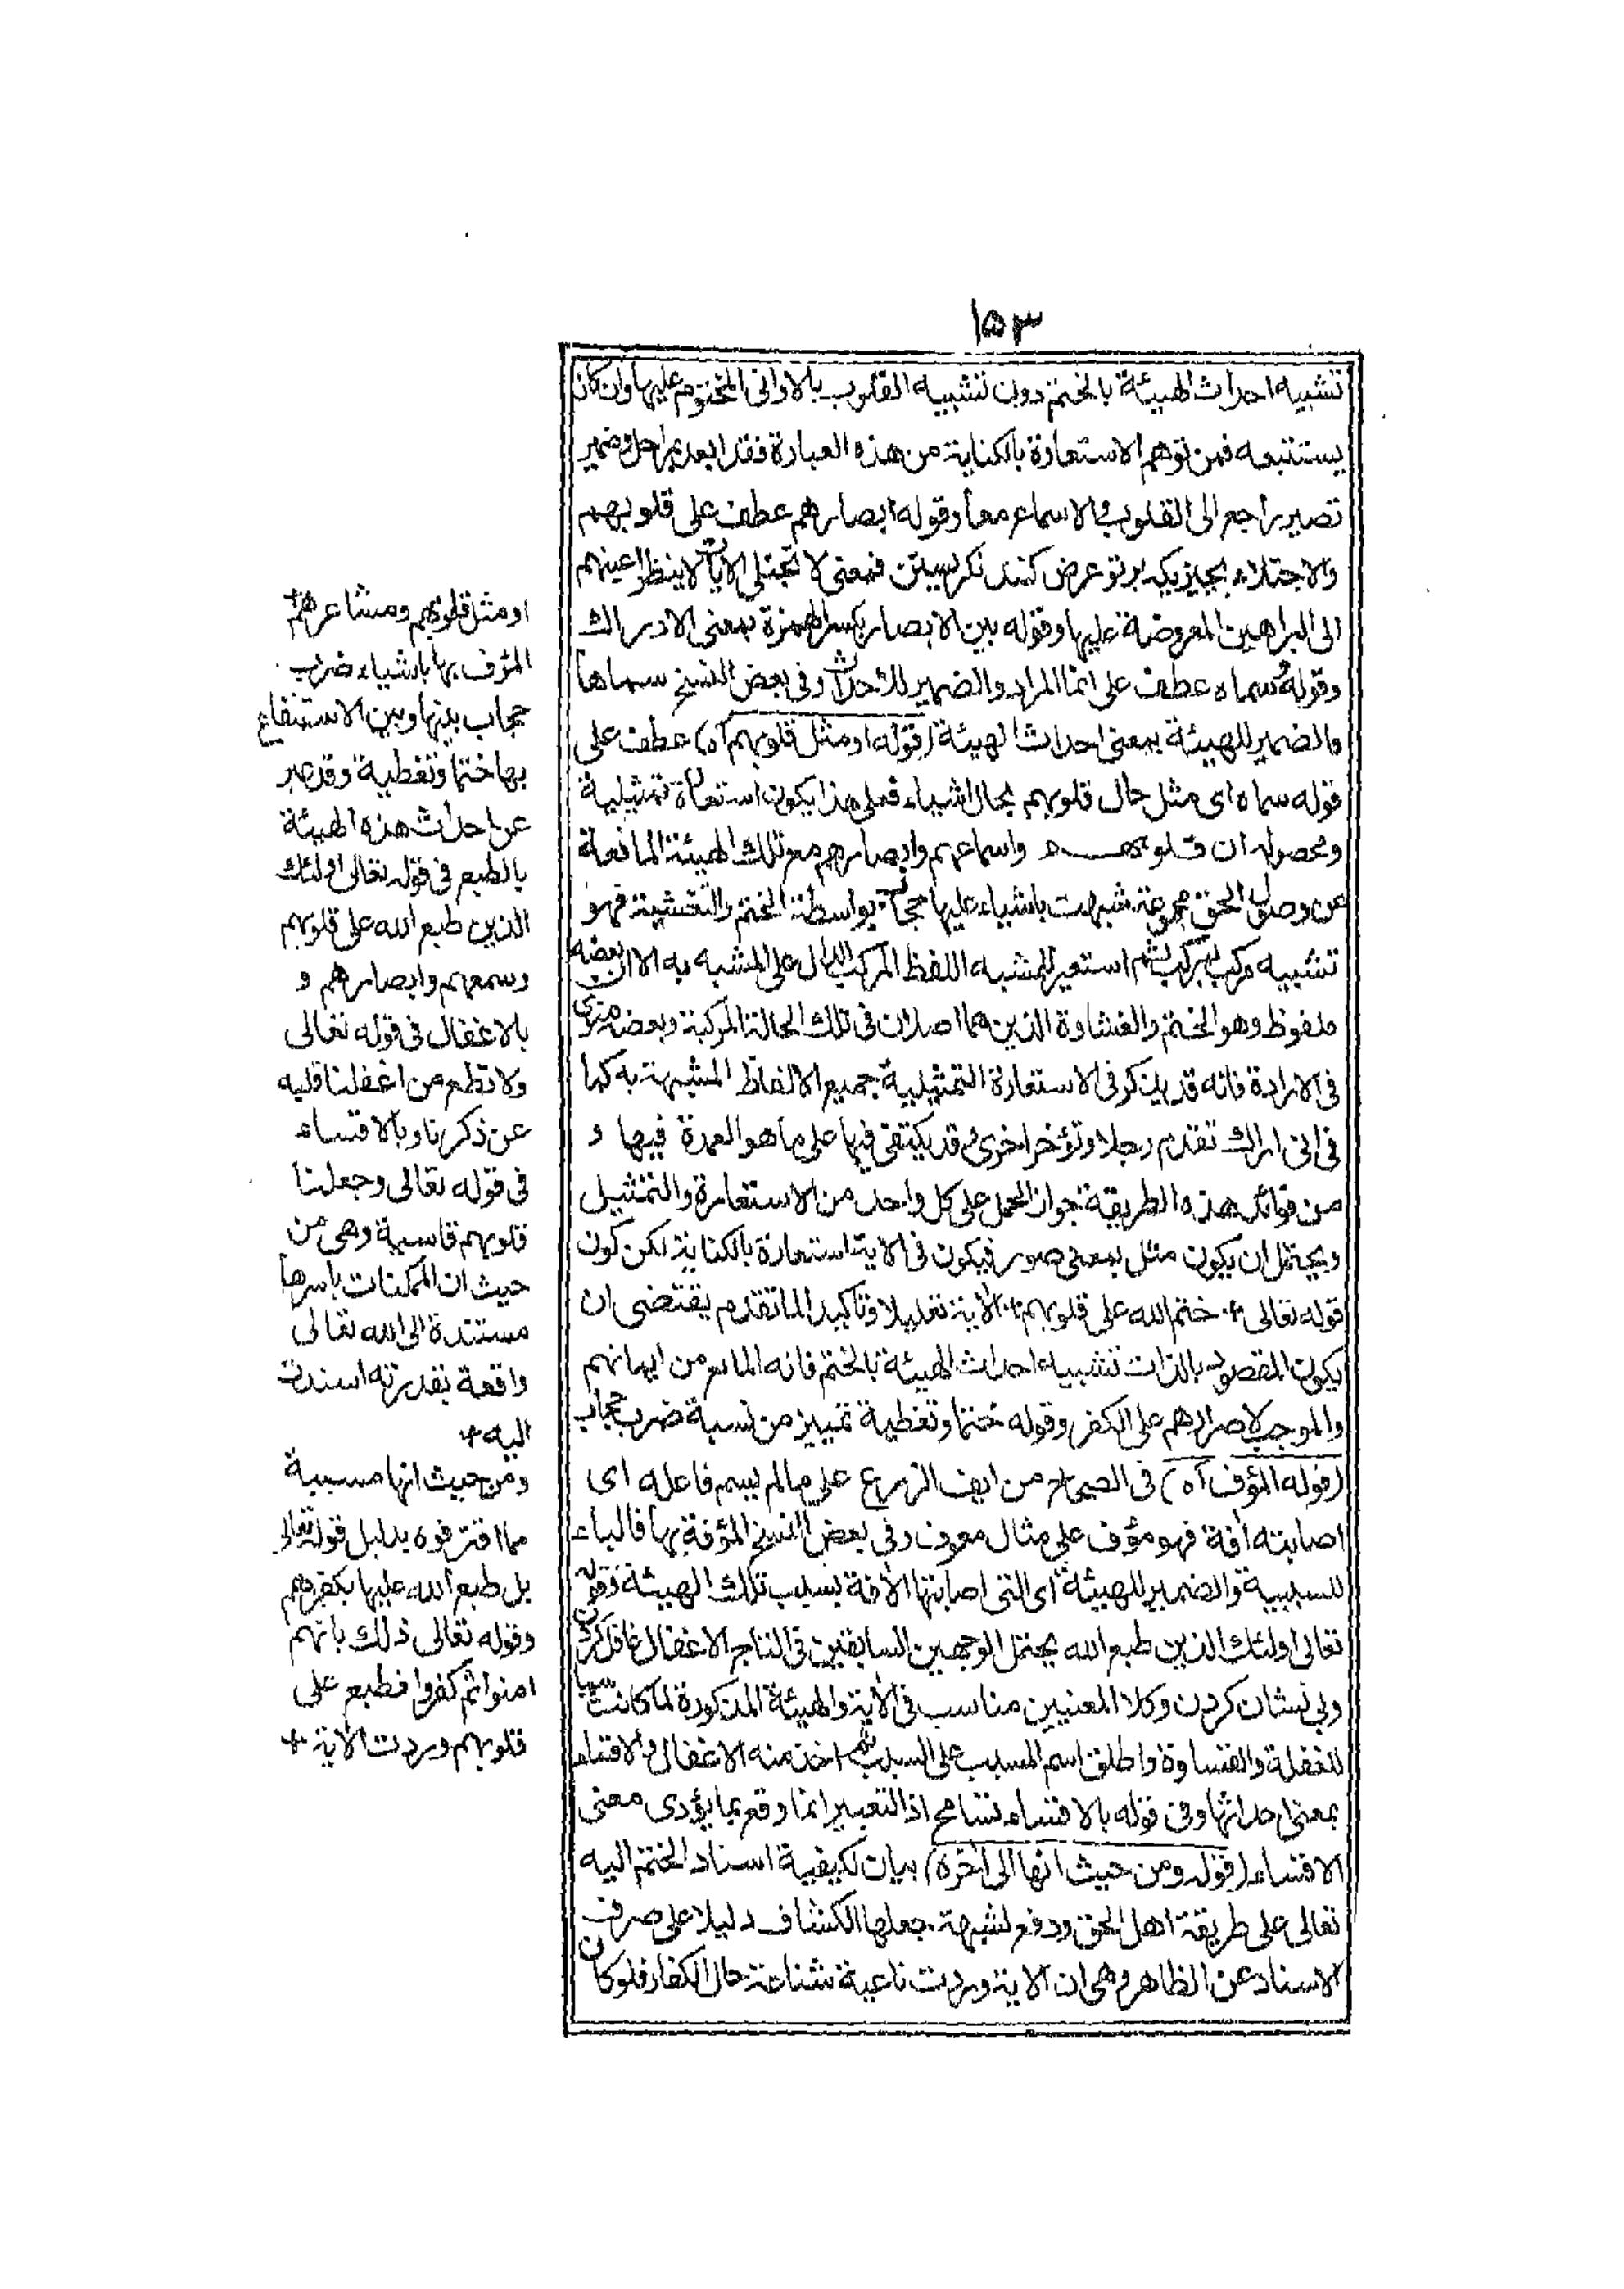 ١٥٣
تشبيه احداث الهيئة بالختم دون تشبيه القلوب بالاوانى المختوم عليها وان كان
يستتبعه فمن توهم الاستعارة بالكناية من هذه العبارة فقد ابعد بمراحل وضمير
تصير راجع الى القلوب والاسماع معا وقوله ابصارهم عطف على قلوبهم
والاجتلاء بچیزیکه برتو عرض کنند نکریستن فمعنى لا تجتلى الايات لا ينظر اعينهم
الى البراهين المعروضة عليها وقوله بين الابصار بكسر الهمزة بمعنى الادراك
وقوله سماه عطف على انما المراد والضمير للاحداث وفى بعض النسخ سماها
والضمير للهيئة بمعنى احداث الهيئة (قوله او مثل قلوبهم آه) عطف على
قوله سماه اى مثل حال قلوبهم بحال اشياء فعلى هذا يكون استعارة تمثيلية
ومحصوله ان قلوبهم واسماعهم وابصارهم مع تلك الهيئة المانعة
عن وصول الحق مجموعة شبهت باشياء عليها حجاب بواسطة الختم والتغشية فهو
تشبيه مركب بمركب ثم استعير للمشبه اللفظ المركب الدال على المشبه به الا ان بعضه
ملفوظ وهو الختم والغشاوة الذين هما اصلان فى تلك الحالة المركبة وبعضه منوى
فى الارادة فانه قد يذكر فى الاستعارة التمثيلية جميع الالفاظ المشبهة به كما
فى انى اراك تقدم رجلا وتؤخر اخرى وقد يكتفى فيها على ما هو العمدة فيها و
من فوائد هذه الطريقة جواز الحمل على كل واحد من الاستعارة والتمثيل
ويحتمل ان يكون مثل بمعنى صور فيكون فى الاية استعارة بالكناية لكن كون
قوله تعالى + ختم الله على قلوبهم + الاية تعليلا وتاكيدا لما تقدم يقتضى ان
يكون المقصود بالذات تشبيه احداث الهيئة بالختم فانه المانع من ايمانهم
والموجب لاصرارهم على الكفر وقوله ختما وتغطية تمييز من نسبة ضرب حجاب
(قوله المؤف آه) فى الصحاح من ايف الزرع على مالم يسم فاعله اى
اصابته افة فهو مؤف على مثال معوف وفى بعض النسخ المؤفة بها فالباء
للسببية والضمير للهيئة اى التى اصابتها الافة بسبب تلك الهيئة فقوله
تعالى اولئك الذين طبع الله يحتمل الوجهين السابقين فى التاج الاغفال غافل کردن
وبی نشان کردن وكلا المعنيين مناسب فى الاية والهيئة المذكورة لما كانت سببا
للغفلة والقساوة واطلق اسم المسبب على السبب ثم اخذ منه الاغفال والاقساء
بمعنى احداثها وفى قوله بالاقساء تسامح اذ التعبير انما وقع بما يؤدى معنى
الاقساء (قوله ومن حيث انها الى اخره) بيان لكيفية اسناد الختم اليه
تعالى على طريقة اهل الحق ودفع لشبهة جعلها الكشاف دليلا على صرف
الاسناد عن الظاهر وهى ان الاية وردت ناعية شناعة حال الكفار فلو كان
او مثل قلوبهم ومشاعرهم
المؤف بها باشياء ضرب
حجاب بينها وبين الاستنفاع
بها ختما وتغطية وقد عبر
عن احداث هذه الهيئة
بالطبع فى قوله تعالى اولئك
الذين طبع الله على قلوبهم
وسمعهم وابصارهم و
بالاغفال فى قوله تعالى
ولا تطع من اغفلنا قلبه
عن ذكرنا وبالاقساء
فى قوله تعالى وجعلنا
قلوبهم قاسية وهى من
حيث ان الممكنات باسرها
مستندة الى الله تعالى
واقعة بقدرته اسندت
اليه +
ومن حيث انها مسببة
مما اقترفوه بدليل قوله تعالى
بل طبع الله عليها بكفرهم
وقوله تعالى ذلك بانهم
امنوا ثم كفروا فطبع على
قلوبهم وردت الاية +